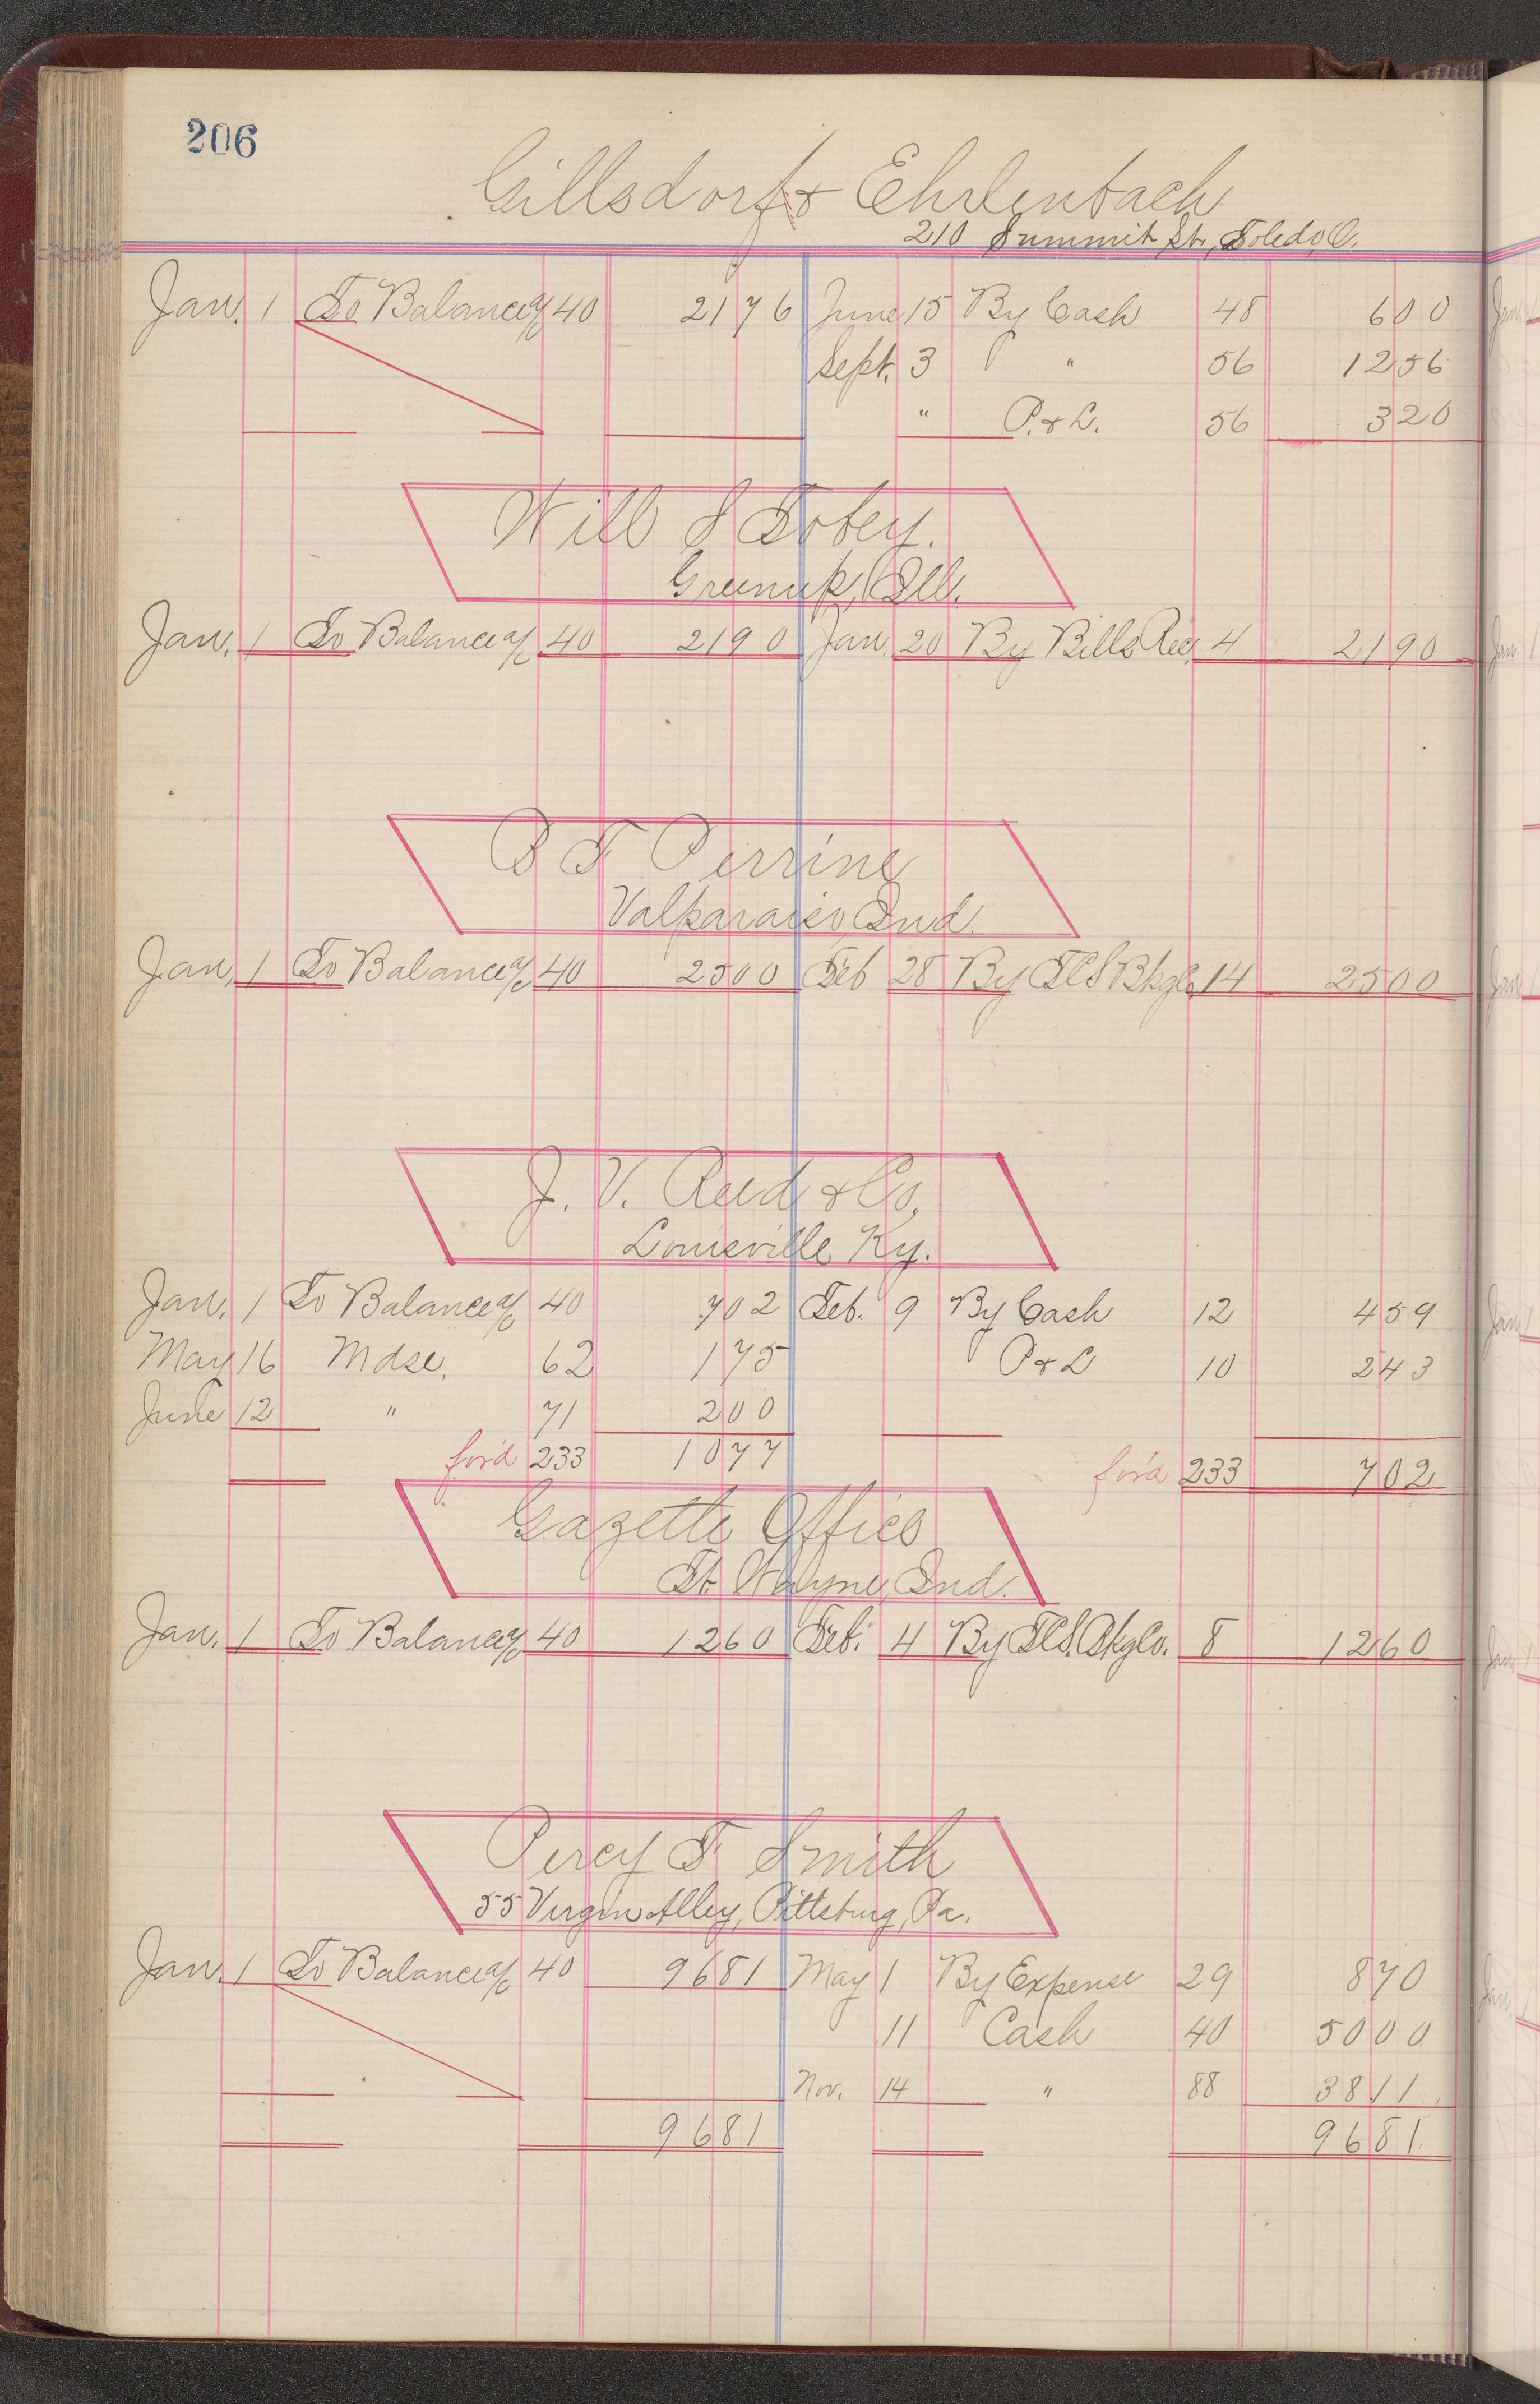 206
Gillsdorf & Ehrlenbach
210 Summit St., Toledo, O.
Jan. 1 To Balance a/c 40 2176 June 15 By Cash 48 600
Sept. 3 " 56 1256
" P. & L. 56 320
Will S Tobey.
Greenup, Ill.
Jan. 1 To Balance a/c 40 2190 Jan. 20 By Bills Rec. 4 2190
B F Perrine
Valparaiso, Ind.
Jan. 1 To Balance a/c 40 2500 Feb 28 By 14 2500
J. V. Reed & Co.
Louisville Ky.
Jan. 1 To Balance a/c 40 702 Feb. 9 By Cash 12 459
May 16 Mdse. 62 175 P & L 10 243
June 12 " 71 200
for'd 233 1077 for'd 233 702
Gazette Office
Ft. Wayne, Ind.
Jan. 1 To Balance a/c 40 1260 Feb. 4 By 8 1260
Percy F Smith
55 Virgin Alley, Pittsburg, Pa.
Jan. 1 To Balance a/c 40 9681 May 1 By Expense 29 870
11 Cash 40 5000
Nov. 14 " 88 3811
9681 9681